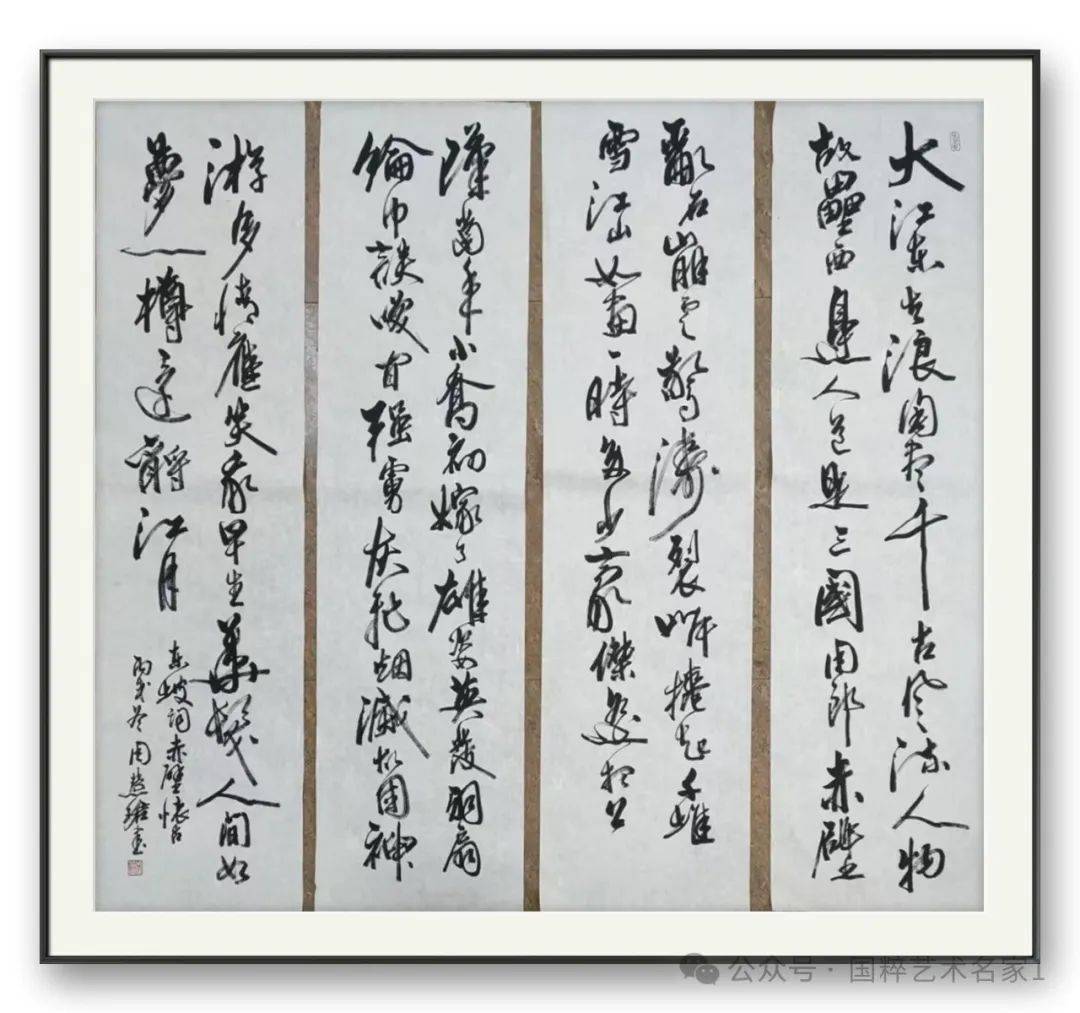 大江東去浪淘盡千古風流人物
故壘西邊人道是三國周郎赤壁
亂石崩雲驚濤裂岸捲起千堆
雪江山如畫一時多少豪傑遥想公
瑾當年小喬初嫁了雄姿英發羽扇
綸巾談咲間强虜灰飛烟滅故國神
游多情應笑我早生華髮人間如
夢一樽還酹江月
東坡詞赤壁懷古
丙戌冬周慧珺書
公众号·国粹艺术名家1